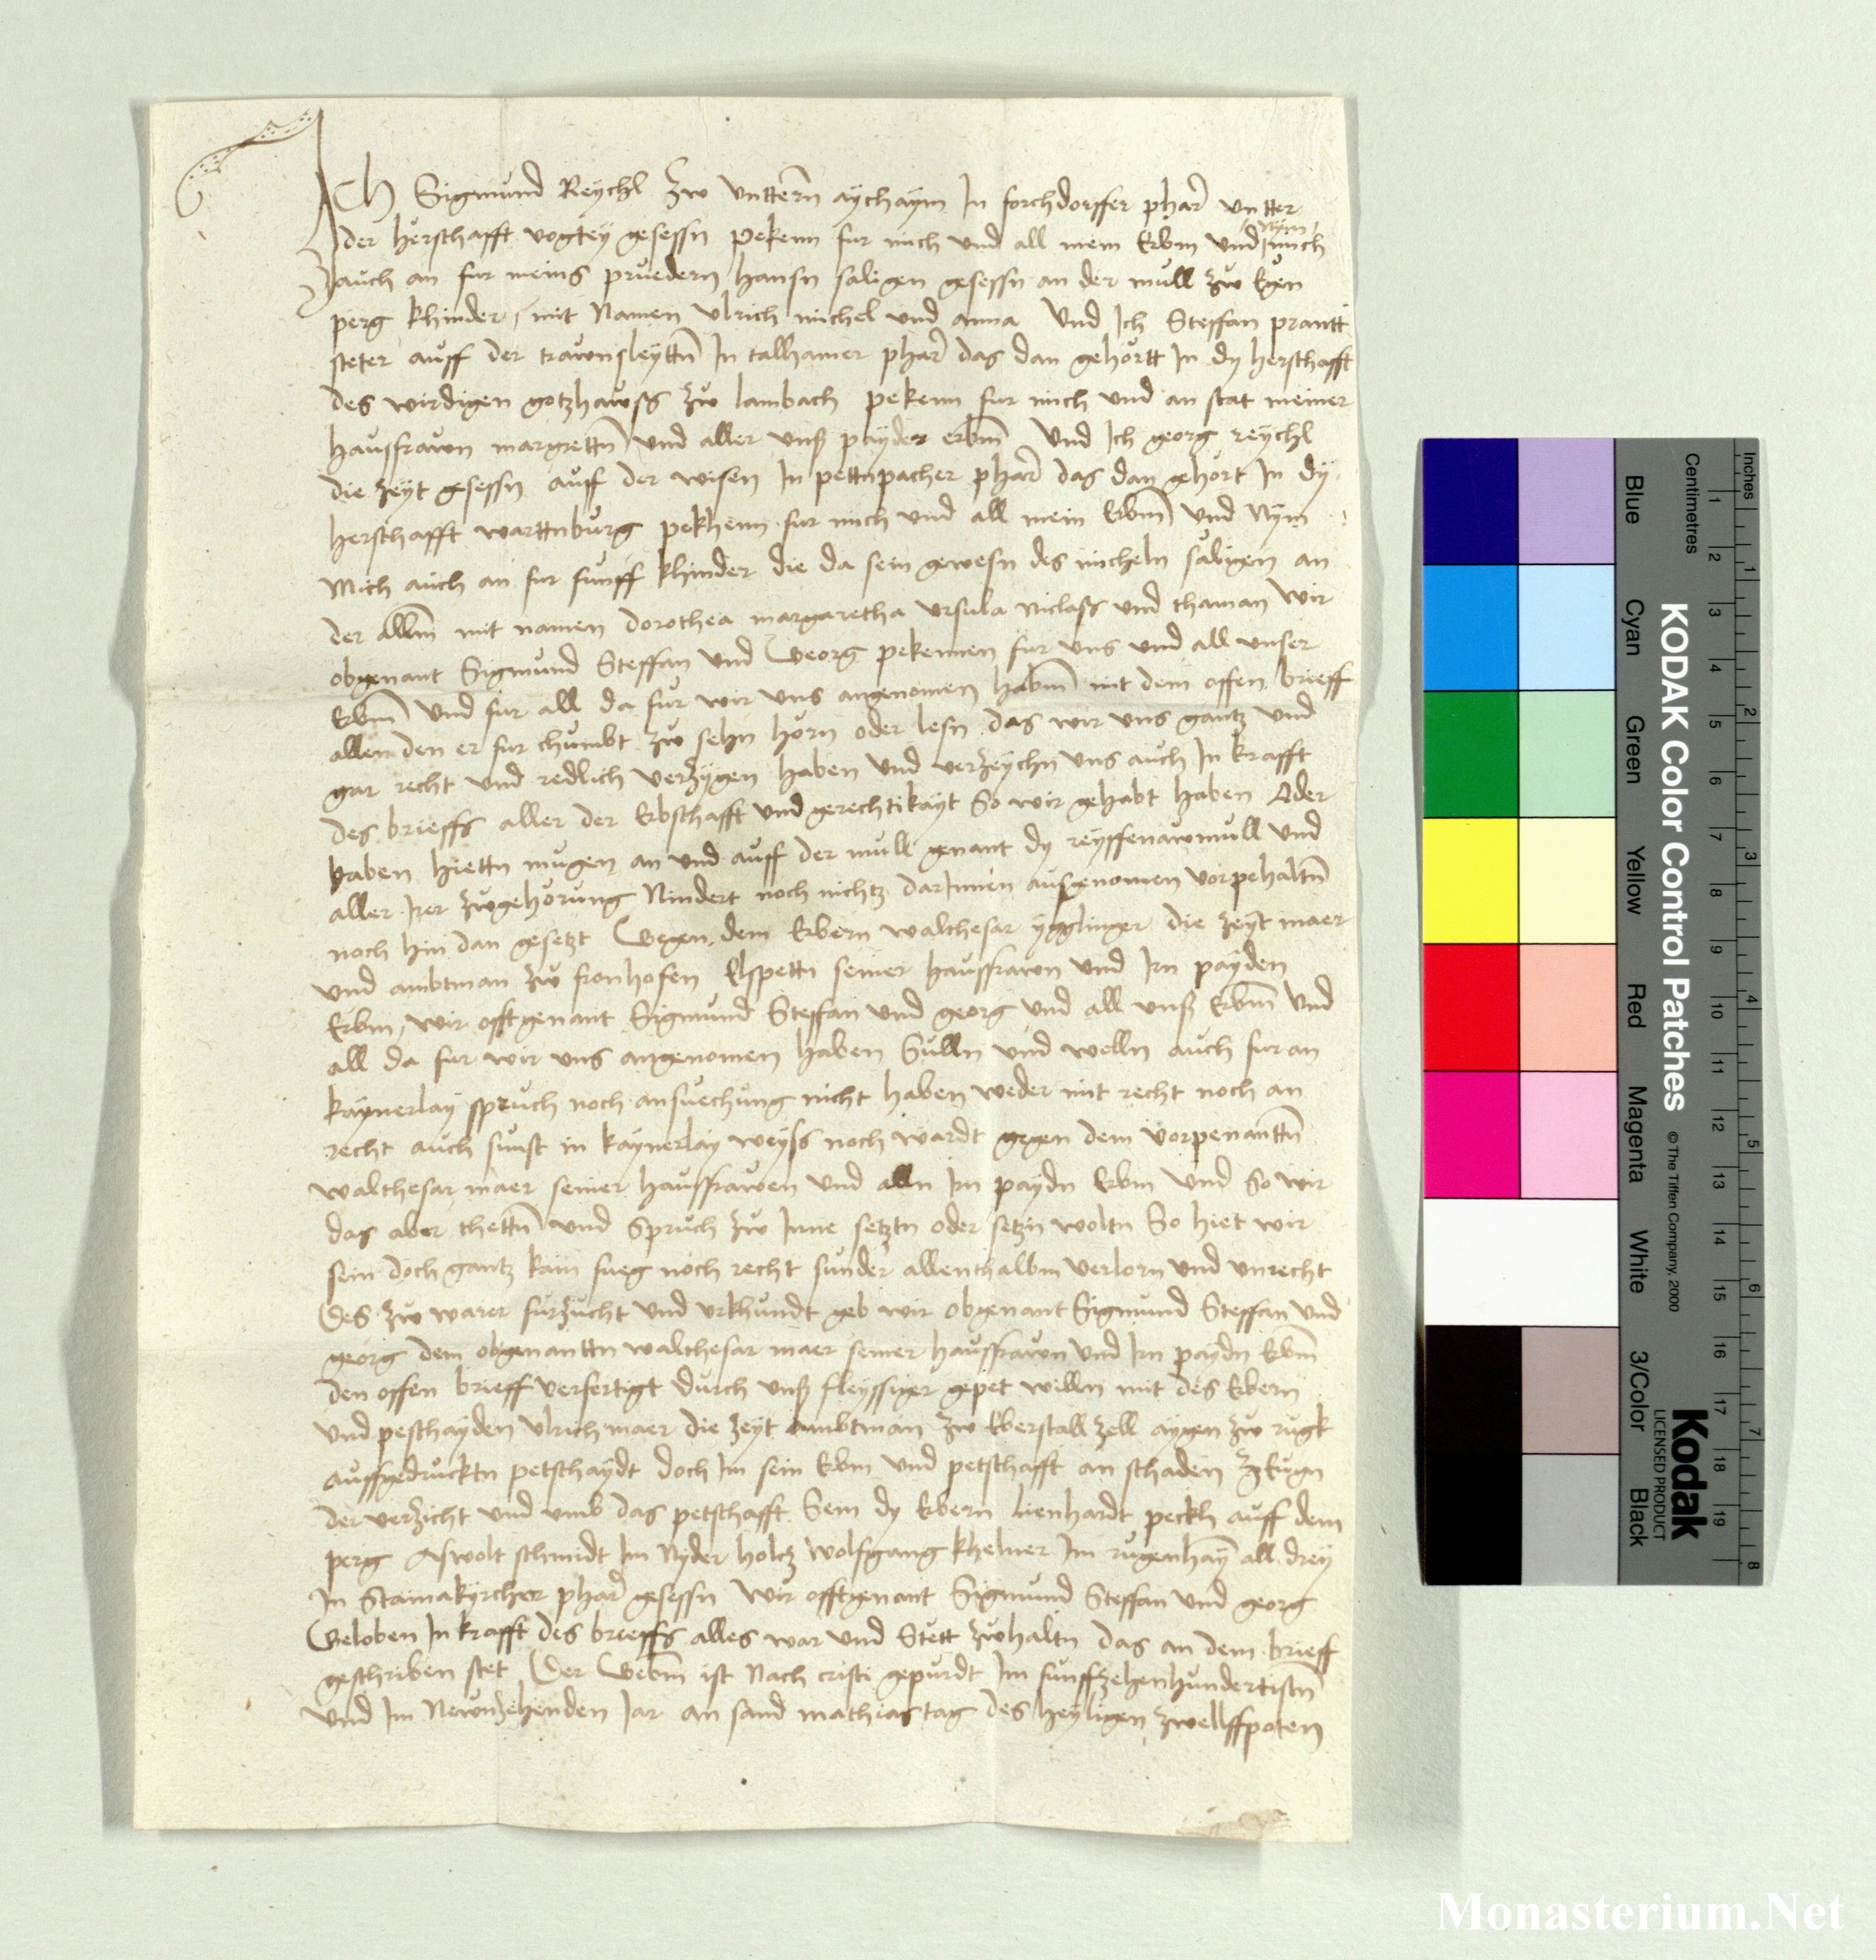 ICh Sigmund Reychl zw unttern aychaym In forchdorffer pharr untter
der herschafft vogtey gesessn pekenn fur mich und all mein Erbm und nym mich
auch an fur meins pruedern hansn saligen gesessn an der mull zw Egen
perg khinder mit Namen ulrich michel und anna Und Ich Steffan prantt
steter auff der trawnsleyttn In talhamer pharr das dan gehortt In dy herschafft
des wirdigen gotzhawss zw lambach pekenn fur mich und an stat meiner
hausfrawn margrettn und aller unß payder erbm Und Ich georg reychl
die zeyt gesessn auff der wisen In pettnpacher pharr das dan gehort In dy
herschafft warttnburg pekhenn fur mich und all mein Erbm und Nym
Mich auch an fur funff khinder die da sein gewesn des micheln saligen an
der allm mit namen dorothea margaretha ursula Niclass und thaman Wir
obgenant Sigmund Steffan und Georg pekennen fur uns und all unser
Erbm und fur all da fur wir uns angenomen habm mit dem offen brieff
allen den er fur chumbt zw sehn horn oder lesn das wir uns gantz und
gar recht und redlich verzygen haben und verzeychn uns auch In krafft
des brieffs aller der Erbschafft und gerechtikayt So wir gehabt haben Oder
haben hiettn mugen an und auff der mull genant dy reyffenawmull und
aller Irer zwgehorung Nindert noch nichtz darInnen ausgenomen vorpehaltn
noch hin dan gesetzt Gegen dem Erbern walthesar ygglinger die zeyt maer
und ambtman zw fronhofen Elspettn seiner hausfrawn und Irn payden
Erbm, wir offtgenant Sigmund Steffan und georg und all unß Erbm und
all da fur wir uns angenomen haben Sulln und welln auch fur an
kaynerlay spruch noch ansuechung nicht haben weder mit recht noch an
recht auch sunst in kaynerlay weyss noch wardt gegen dem vorpenanttn
walthesar maer seiner hausfrawen und alln Irn paydn Erbm und So wir
das aber thettn und Spruch zw Inne setztn oder setzn woltn So hiet wir
sein doch gantz kain fueg noch recht sunder allenthalbm verlorn und unrecht
Des zw warer furzucht und urkhundt geb wir obgenant Sigmund Steffan und
georg dem obgenanttn walthesar maer seiner hausfrawn und Irn paydn Erbm
den offen brieff verfertigt durch unß fleyssiger gepet willn mit des Erbern
und peschayden ulrich maer die zeyt ambtman zw Eberstallzell aygen zw rugk
auffgedrucktn petschaydt doch Im sein Erbm und petschafft an schaden zEugn
der verzicht und umb das petschafft Sein dy Erbern lienhardt peckh auff dem
perg Aswolt schmidt Im Nyder holcz Wolfgang khelner Im rugenhaym all drey
In Stainakyrcher pharr gesessn Wir offtgenant Sigmund Steffan und georg
Geloben In krafft des brieffs alles war und Stett zwhaltn das an dem brieff
geschriben stet Der Gebm ist Nach cristi gepurdt Im funffzehenhundertistn
und Im Newnzehenden Jar an sand mathias tag des heyligen zwellffpoten
Inches
Centimetres
Blue
Cyan
Green
Yellow
Red
Magenta
White
3/Color
Black
KODAK Color Control Patches
© The Tiffen Company, 2000
Kodak
LICENSED PRODUCT
1 2 3 4 5 6 7 8 9 10 11 12 13 14 15 16 17 18 19
1 2 3 4 5 6 7 8
Monasterium.Net